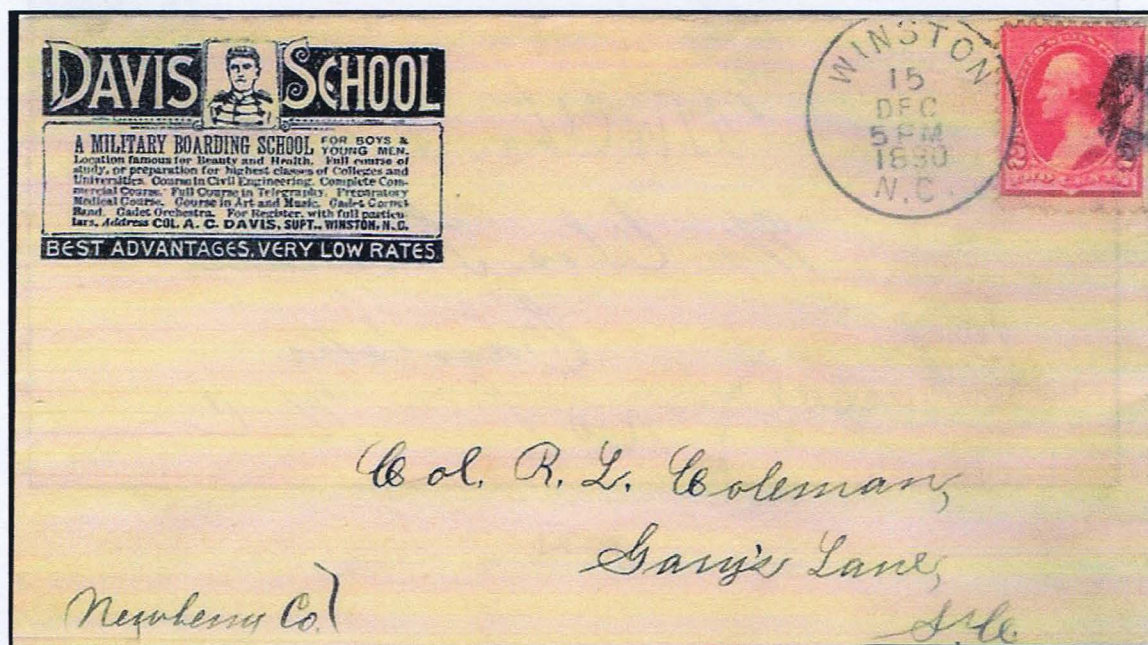 DAVIS SCHOOL
A MILITARY BOARDING SCHOOL FOR BOYS & YOUNG MEN.
Location famous for Beauty and Health. Full course of
study, or preparation for highest classes of Colleges and
Universities. Course in Civil Engineering. Complete Com-
mercial Course. Full Course in Telegraphy. Preparatory
Medical Course. Course in Art and Music. Cadet Cornet
Band. Cadet Orchestra. For Register, with full particu-
lars, Address COL. A. C. DAVIS, SUPT., WINSTON, N.C.
BEST ADVANTAGES. VERY LOW RATES.
WINSTON
15
DEC
5 PM
1890
N.C.
Col. R. L. Coleman,
Gary's Lane,
Newberry Co.
S.C.